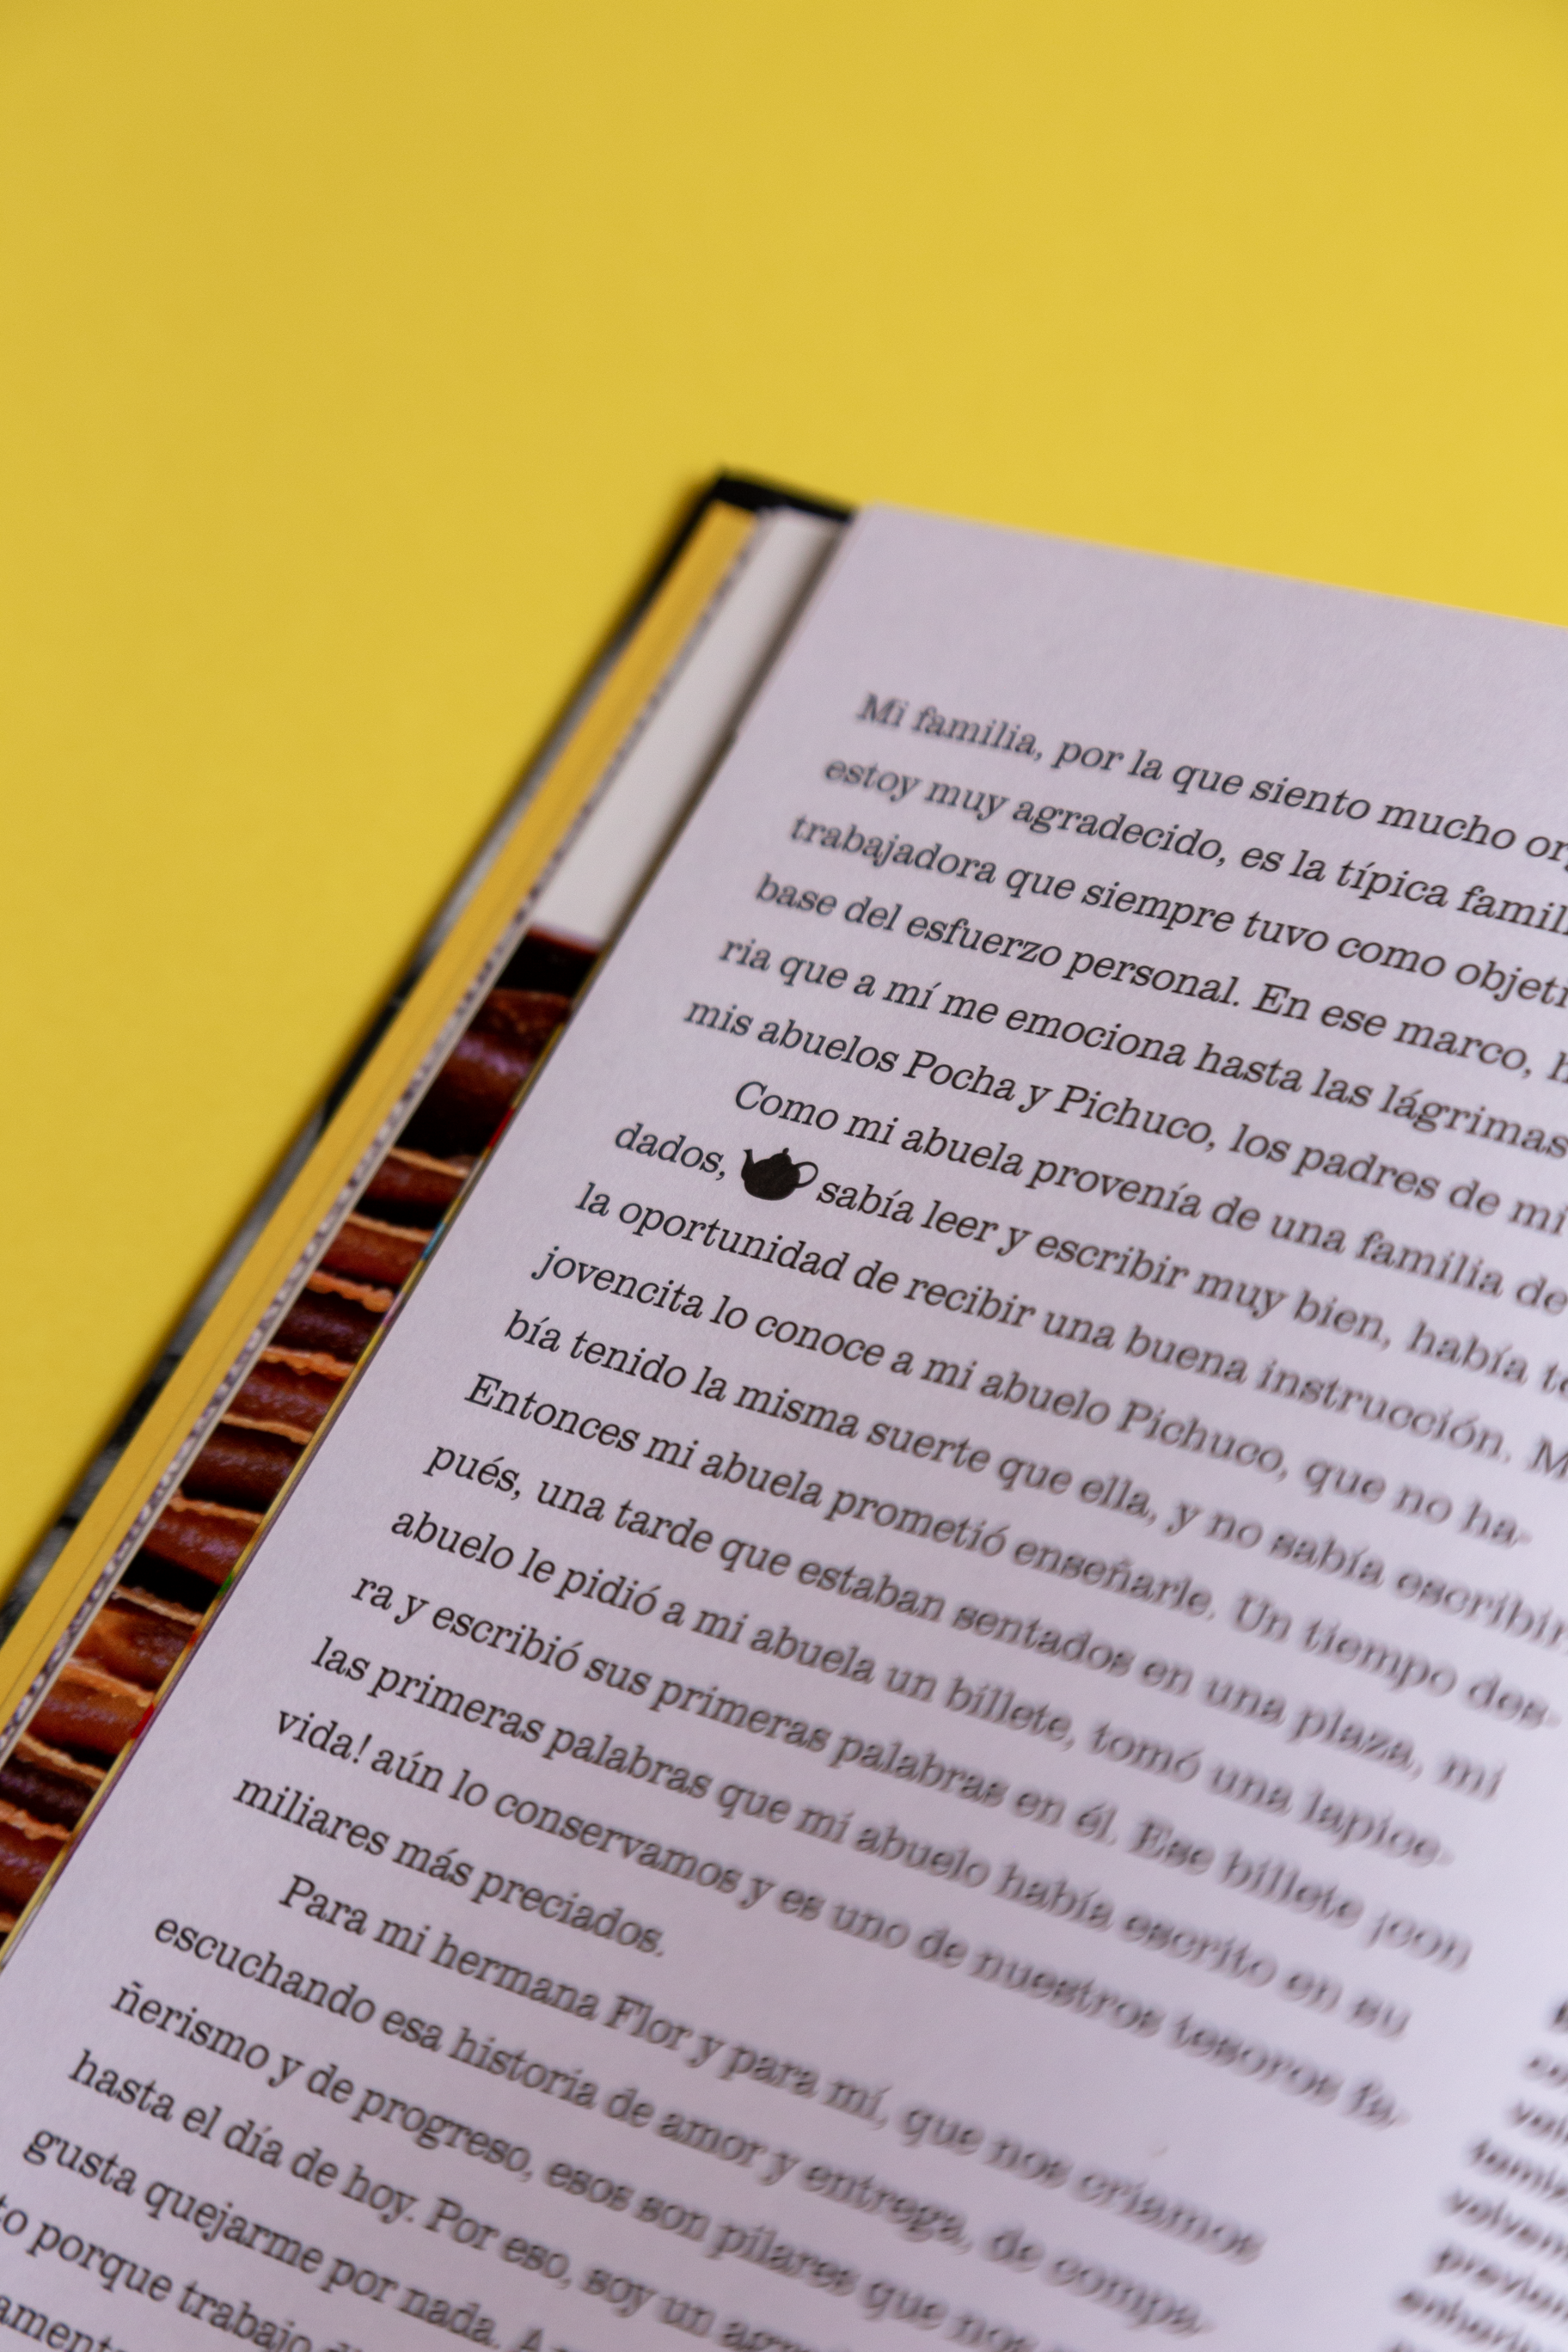 Mi familia, por la que siento mucho or
estoy muy agradecido, es la típica famil
trabajadora que siempre tuvo como objeti
base del esfuerzo personal. En ese marco, h
ria que a mí me emociona hasta las lágrimas
mis abuelos Pocha y Pichuco, los padres de mi
Como mi abuela provenía de una familia de
dados, sabía leer y escribir muy bien, había te
la oportunidad de recibir una buena instrucción. M
jovencita lo conoce a mi abuelo Pichuco, que no ha-
bía tenido la misma suerte que ella, y no sabía escribir
Entonces mi abuela prometió enseñarle. Un tiempo des-
pués, una tarde que estaban sentados en una plaza, mi
abuelo le pidió a mi abuela un billete, tomó una lapice-
ra y escribió sus primeras palabras en él. Ese billete ¡con
las primeras palabras que mi abuelo había escrito en su
vida! aún lo conservamos y es uno de nuestros tesoros fa-
miliares más preciados.
Para mi hermana Flor y para mí, que nos criamos
escuchando esa historia de amor y entrega, de compa-
ñerismo y de progreso, esos son pilares que nos
hasta el día de hoy. Por eso, soy un
gusta quejarme por nada.
to porque trabajo